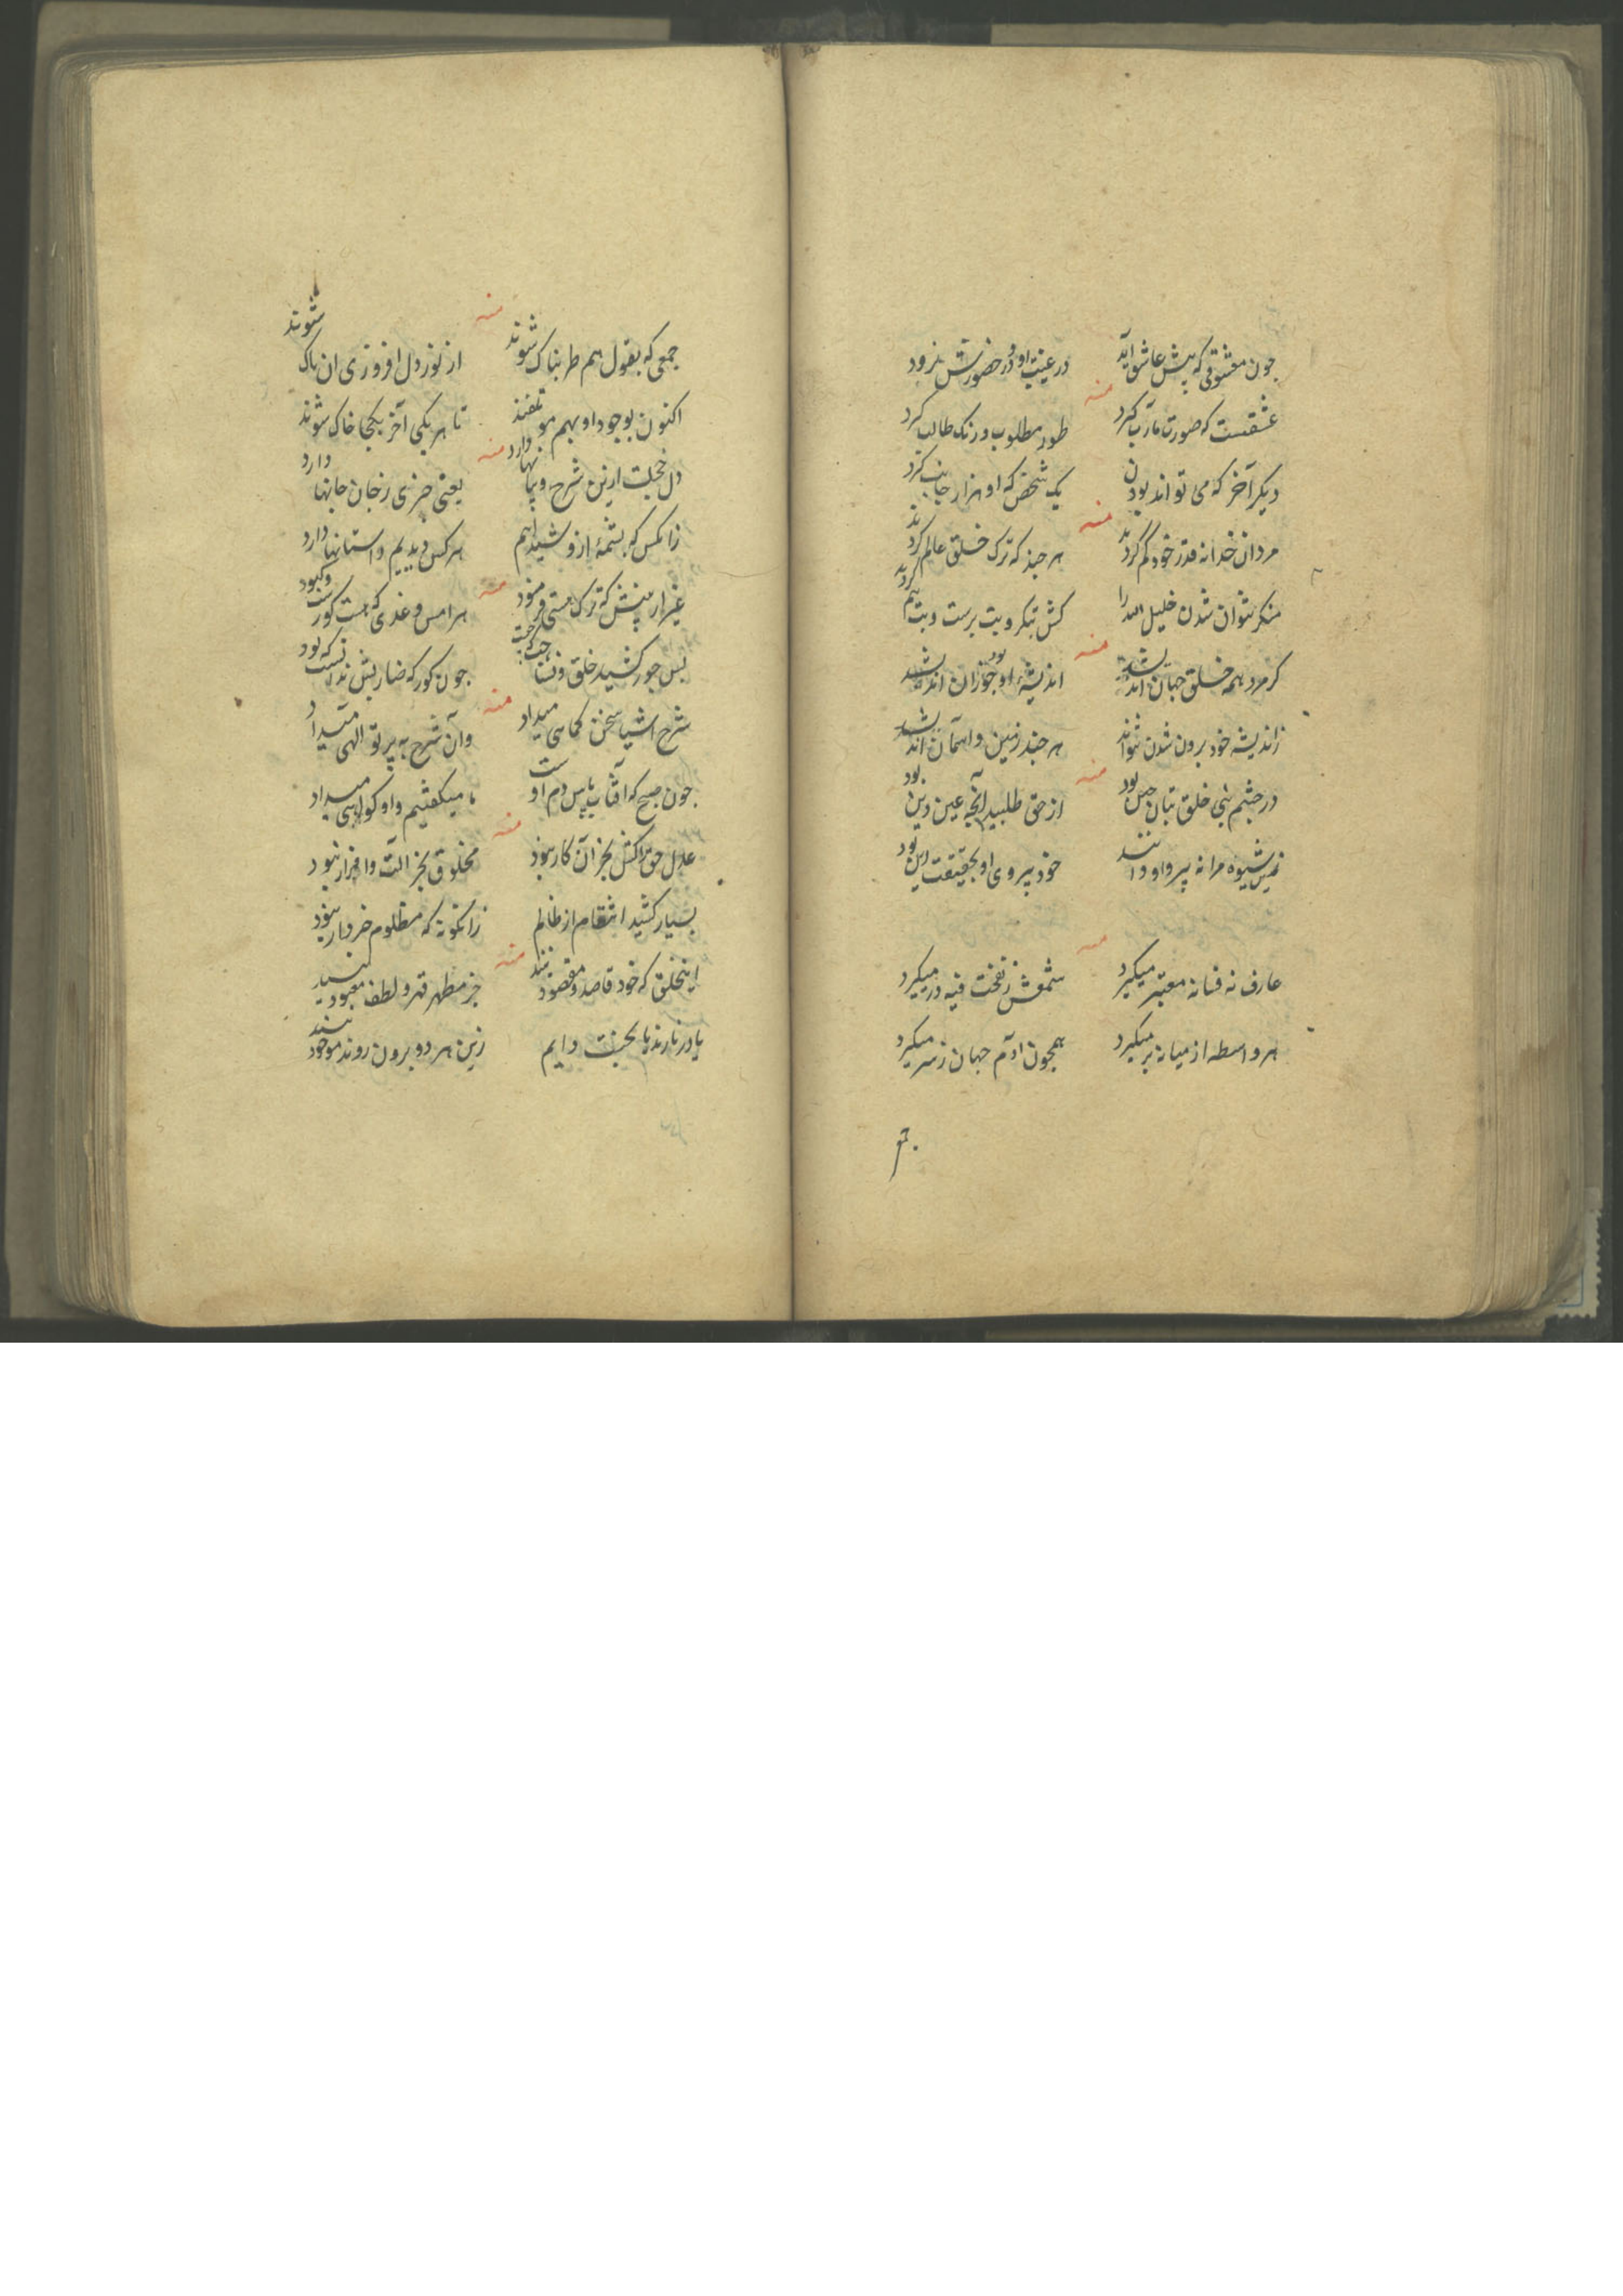 چون معشوقی که پیش عاشق آید
در غیبت او در حضورش نرود
منه
عشقست که صورت مآرب گیرد
طور مطلوب و رنک طالب گیرد
دیکر آخر که می تواند بودن
یک شخص که او هزار جانب گیرد
منه
مردان خدا نه قدر خود کم کردند
هر چند که ترک خلق عالم کردند
منکر نتوان شدن خلیل الله را
کش بتکر و بت پرست و بت هم کردند
منه
کر مرد همه خلق جهان اندیشد
اندیشهٔ او بود جوزان اندیشد
ز اندیشه خود برون شدن نتواند
هر چند زمین و آسمان اندیشد
منه
در چشم نبی خلق بتان چین بود
از حق طلبید آنچه عین دین بود
زین شیوه مرا نه پیرو او دانند
خود پیروی او بحقیقت این بود
منه
عارف نه فسانه معتبر میکیرد
شمعش ز نفخت فیه در میکیرد
هر واسطه از میانه بر میکیرد
همچون آدم جهان ز سر میکیرد
جمعی که بقول هم طربناک شوند
از نور دل افروزی ان پاک شوند
منه
اکنون بوجود او بهم متفقند
تا هر یکی آخر بکجا خاک شوند
منه
دل خجلت ازین شرح و بیانها دارد
یعنی خبری ز جان جانها دارد
زانکس که بشمهٔ ازو شیدا هم
هر کس دیدیم داستانها دارد
منه
غیر از بینش که ترک هستی فرمود
هر امس و غدی که هست کورست و کبود
بس جور کشید خلق و نشناخت
چون کور که ضاربش ندانست که بود
منه
شرح اشیا سخن کماهی میداد
وان شرح به پرتو الهی میداد
چون صبح که آفتاب پاس دم اوست
ما میکفتیم و او کواهی میداد
منه
عدل حق را کنش بجز آن کار نبود
مخلوق بجز آلت و افزار نبود
بسیار کشید انتقام از ظالم
زانکونه که مظلوم خبردار نبود
منه
اینخلق که خود قاصد و مقصودند
جز مظهر قهر و لطف معبود نیند
یا در نارند یا بجنت دایم
زین هر دو برون روند موجود نیند